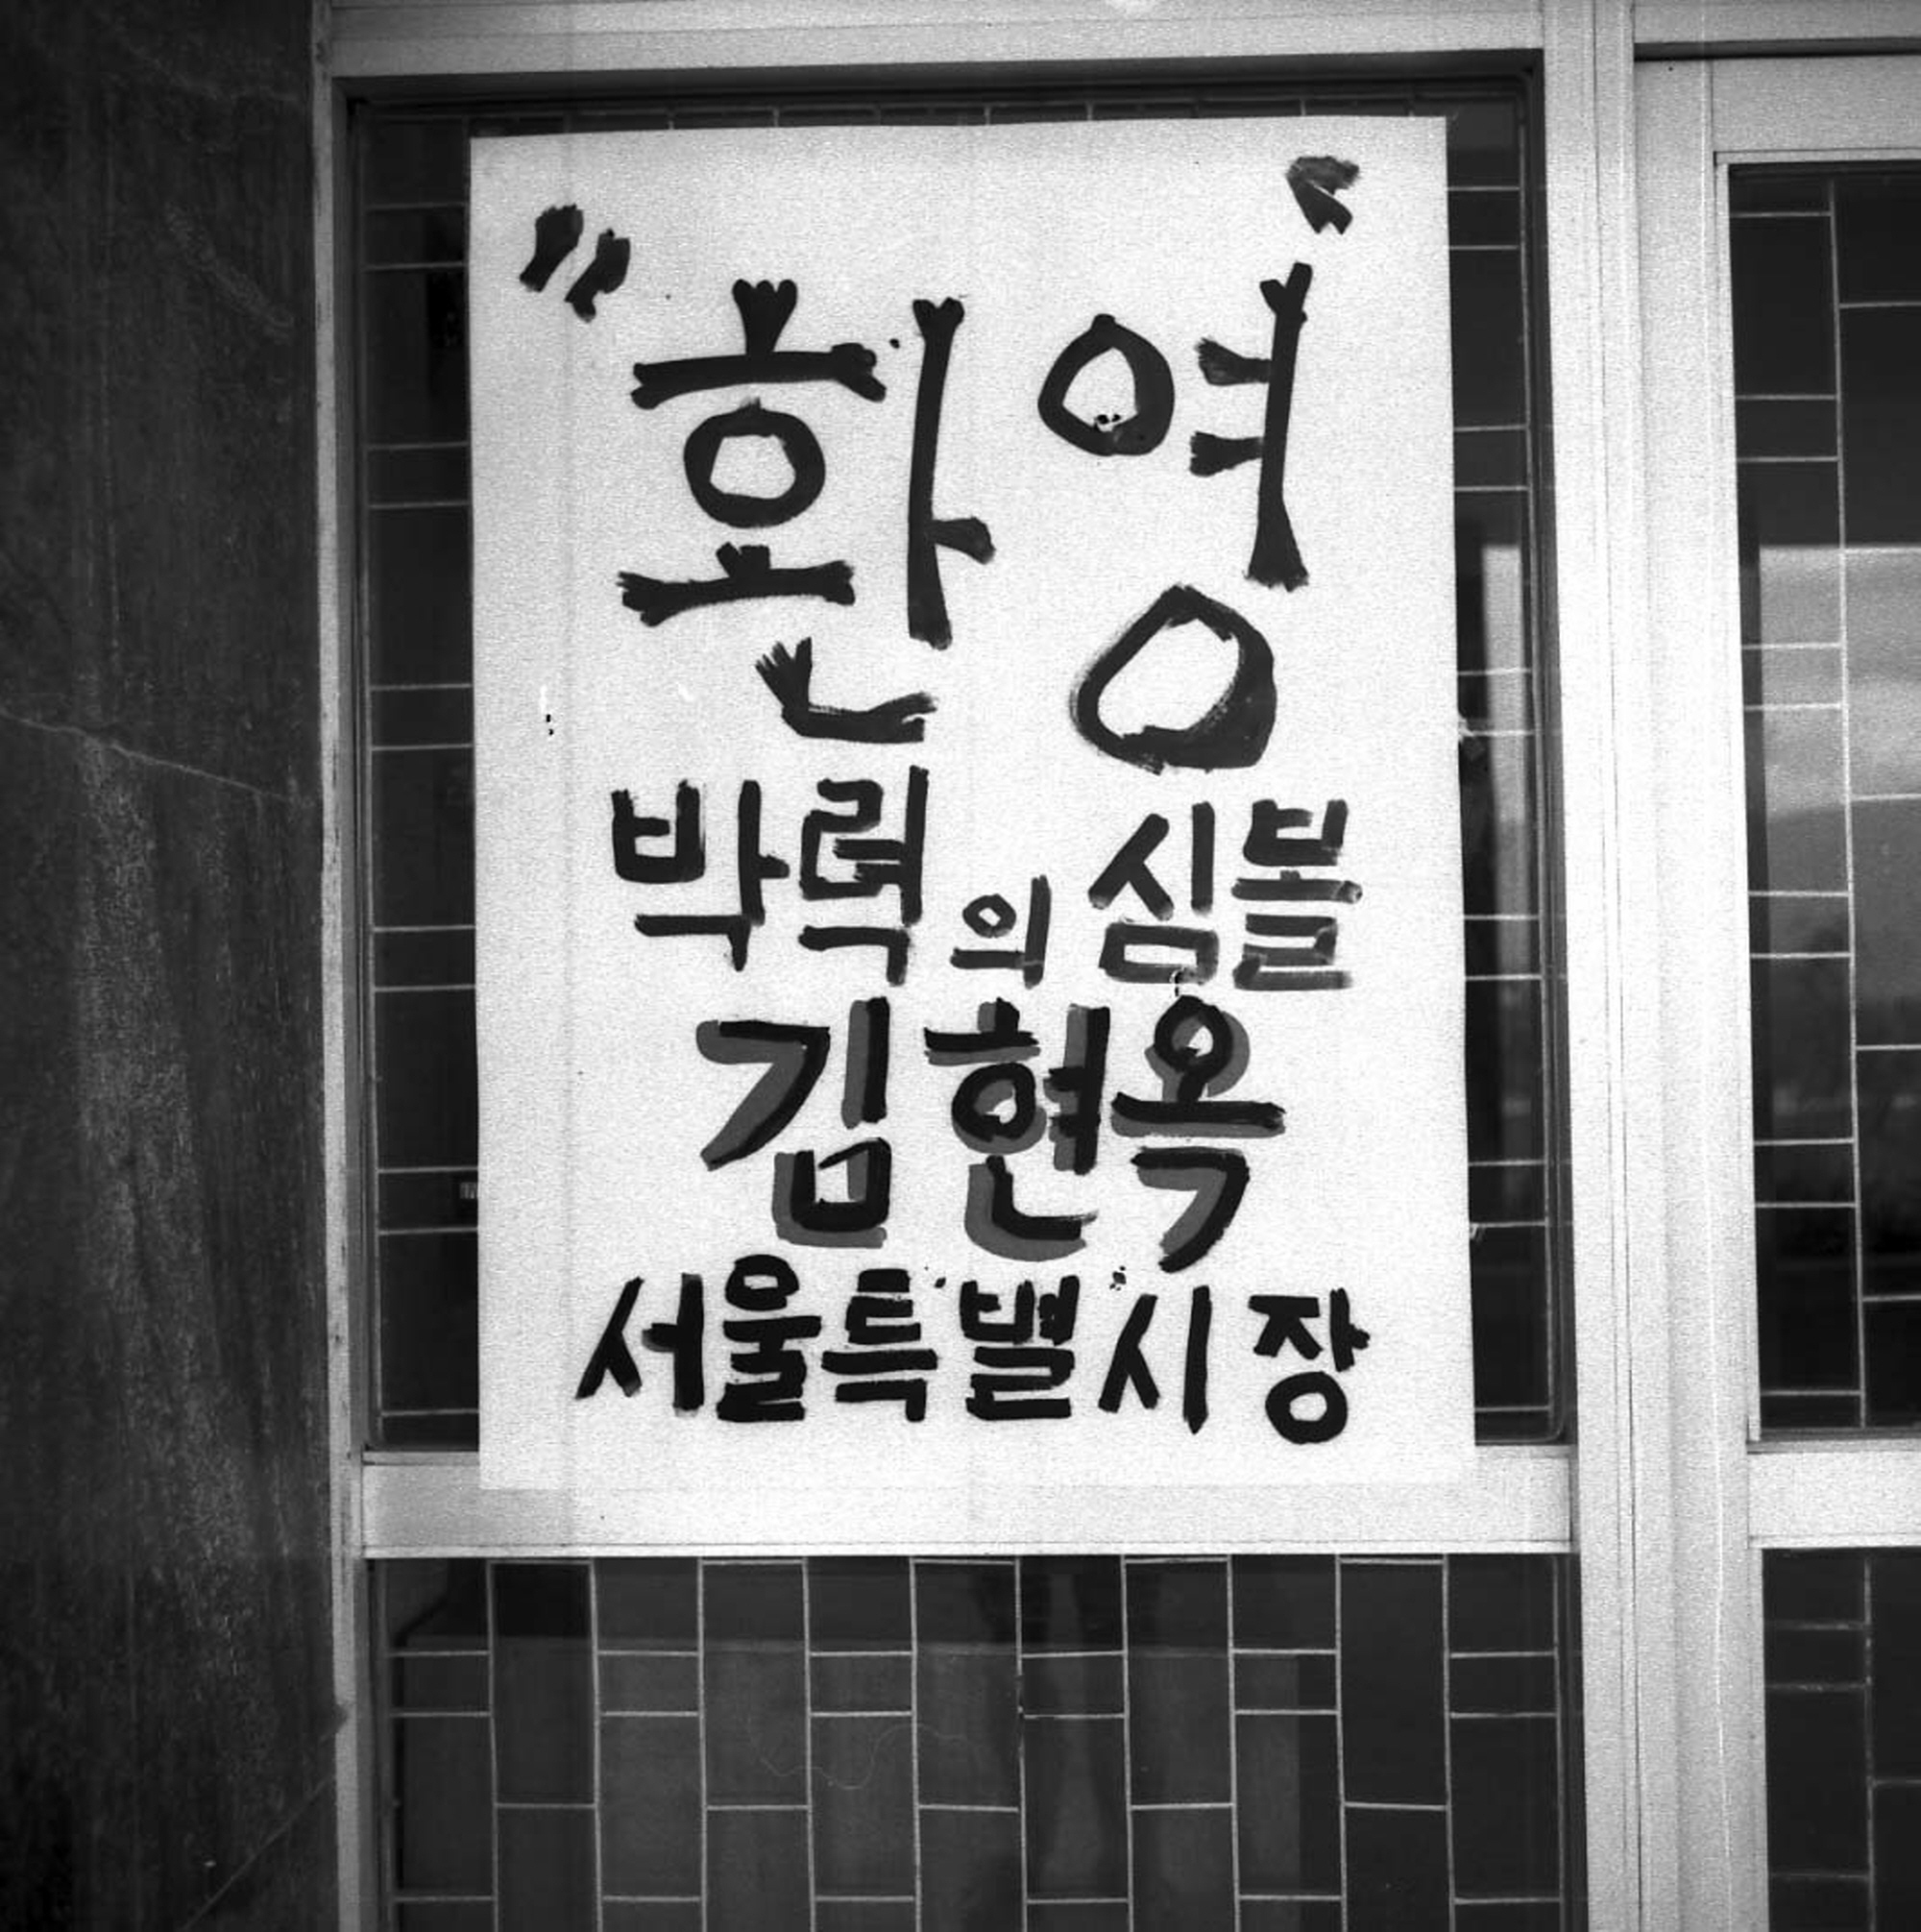 "환영"
박력의 심볼
김현옥
서울특별시장